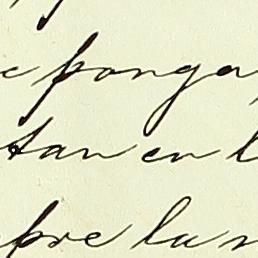 e ponga
tan en l
pre la n